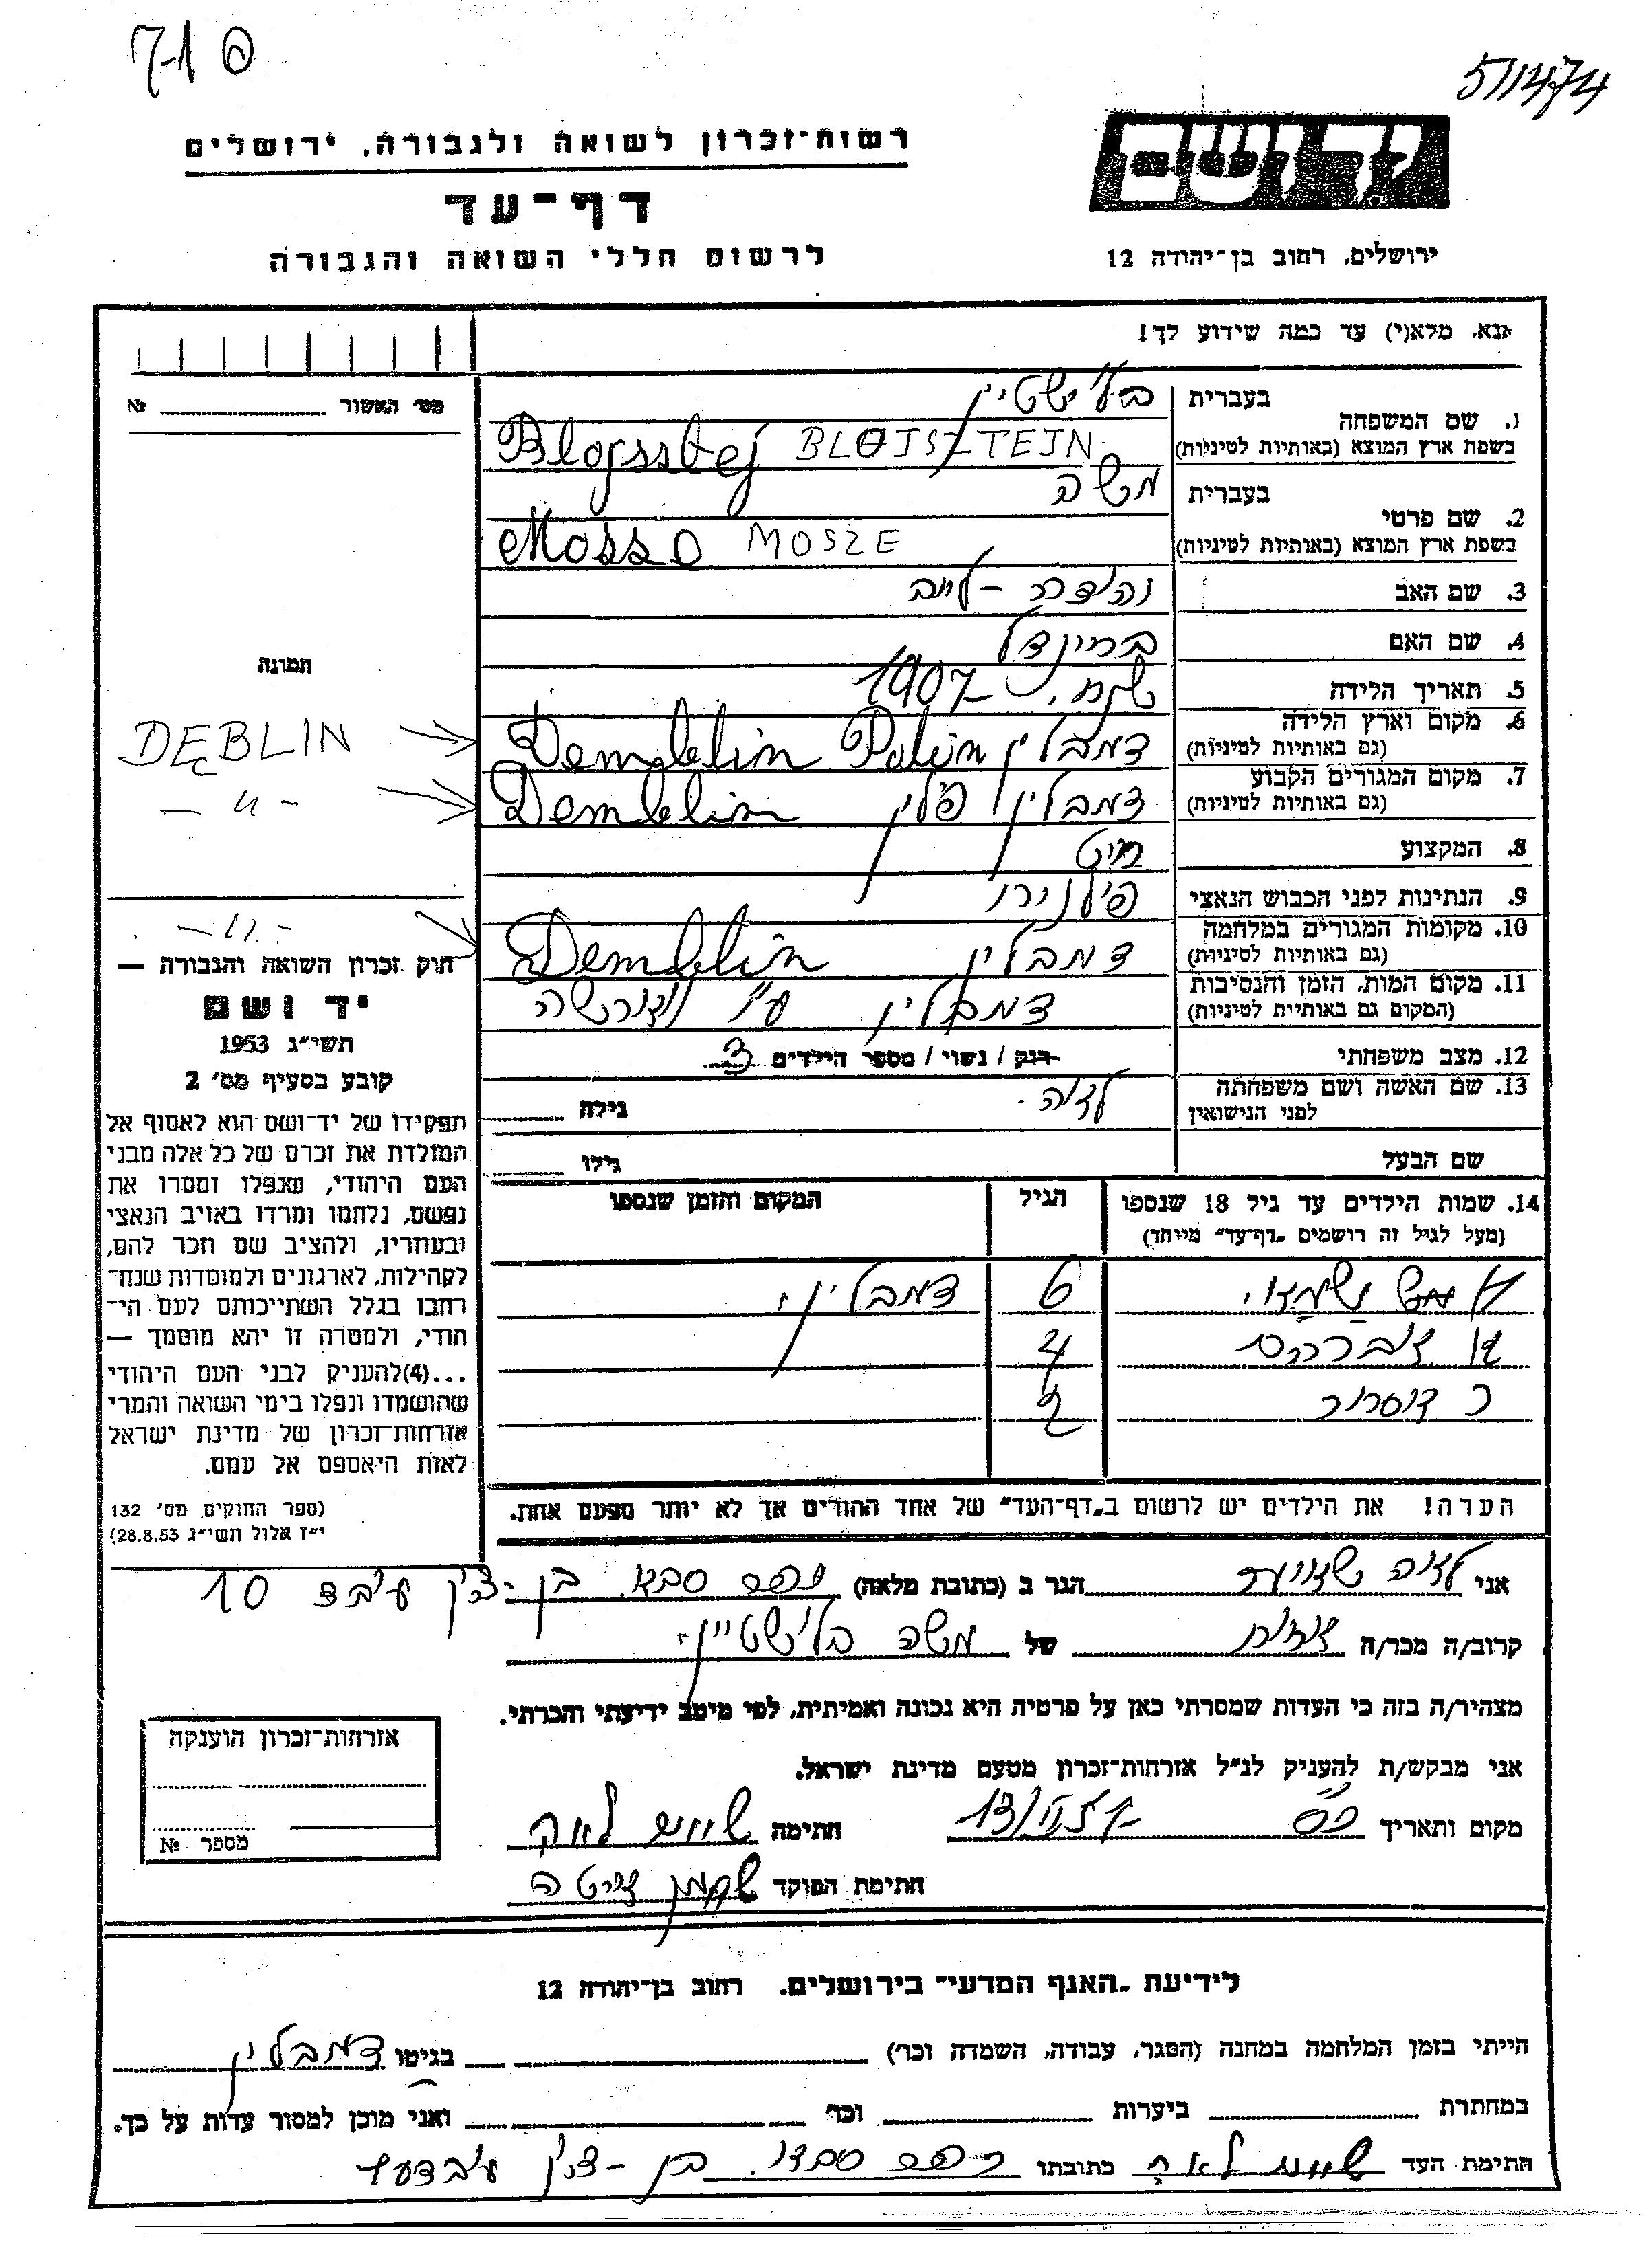 511474
רשות־זכרון לשואה ולגבורה, ירושלים
דף־עד
לרשום חללי השואה והגבורה
ידושם
ירושלים, רחוב בן־יהודה 12
אנא, מלא(י) עד כמה שידוע לך!
מס׳ האשור №
1. שם המשפחה
בעברית
בשפת ארץ המוצא (באותיות לטיניות)
Blojssztej BLOJSZTEIN
2. שם פרטי
בעברית משה
בשפת ארץ המוצא (באותיות לטיניות)
Mosse MOSZE
3. שם האב
4. שם האם בריינדל
5. תאריך הלידה 1907
6. מקום וארץ הלידה
(גם באותיות לטיניות)
דמבלין Polin Demblin
DĘBLIN
7. מקום המגורים הקבוע
(גם באותיות לטיניות)
דמבלין פולין Demblin
– " –
8. המקצוע חיט
9. הנתינות לפני הכבוש הנאצי
10. מקומות המגורים במלחמה
(גם באותיות לטיניות)
דמבלין Demblin
– " –
11. מקום המות, הזמן והנסיבות
(המקום גם באותיות לטיניות)
דמבלין ע"י
12. מצב משפחתי
רווק / נשוי / מספר הילדים 3
13. שם האשה ושם משפחתה
לפני הנישואין
לאה
גילה
שם הבעל
גילו
תמונה
14. שמות הילדים עד גיל 18 שנספו
(מעל לגיל זה רושמים „דף־עד״ מיוחד)
הגיל
המקום והזמן שנספו
6 דמבלין
4
הערה! את הילדים יש לרשום ב„דף־העד״ של אחד ההורים אך לא יותר מפעם אחת.
חוק זכרון השואה והגבורה —
יד ושם
תשי״ג 1953
קובע בסעיף מס׳ 2
תפקידו של יד־ושם הוא לאסוף אל
המולדת את זכרם של כל אלה מבני
העם היהודי, שנפלו ומסרו את
נפשם, נלחמו ומרדו באויב הנאצי
ובעוזריו, ולהציב שם וזכר להם,
לקהילות, לארגונים ולמוסדות שנח־
רבו בגלל השתייכותם לעם הי־
הודי, ולמטרה זו יהא מוסמך —
...(4)להעניק לבני העם היהודי
שהושמדו ונפלו בימי השואה והמרי
אזרחות־זכרון של מדינת ישראל
לאות היאספם אל עמם.
(ספר החוקים מס׳ 132
י״ז אלול תשי״ג 28.8.53)
אני לאה
הגר ב (כתובת מלאה) כפר סבא בן-ציון 10
קרוב/ה מכר/ה
של משה בלוישטיין
מצהיר/ה בזה כי העדות שמסרתי כאן על פרטיה היא נכונה ואמיתית, לפי מיטב ידיעתי והכרתי.
אני מבקש/ת להעניק לנ״ל אזרחות־זכרון מטעם מדינת ישראל.
מקום ותאריך
חתימה
חתימת הפוקד
אזרחות־זכרון הוענקה
מספר №
לידיעת „האגף המדעי״ בירושלים, רחוב בן־יהודה 12
הייתי בזמן המלחמה במחנה (הסגר, עבודה, השמדה וכר׳) בגיטו דמבלין
במחתרת ביערות וכר׳ ואני מוכן למסור עדות על כך.
חתימת העד לאה כתובתו כפר סבא בן-ציון